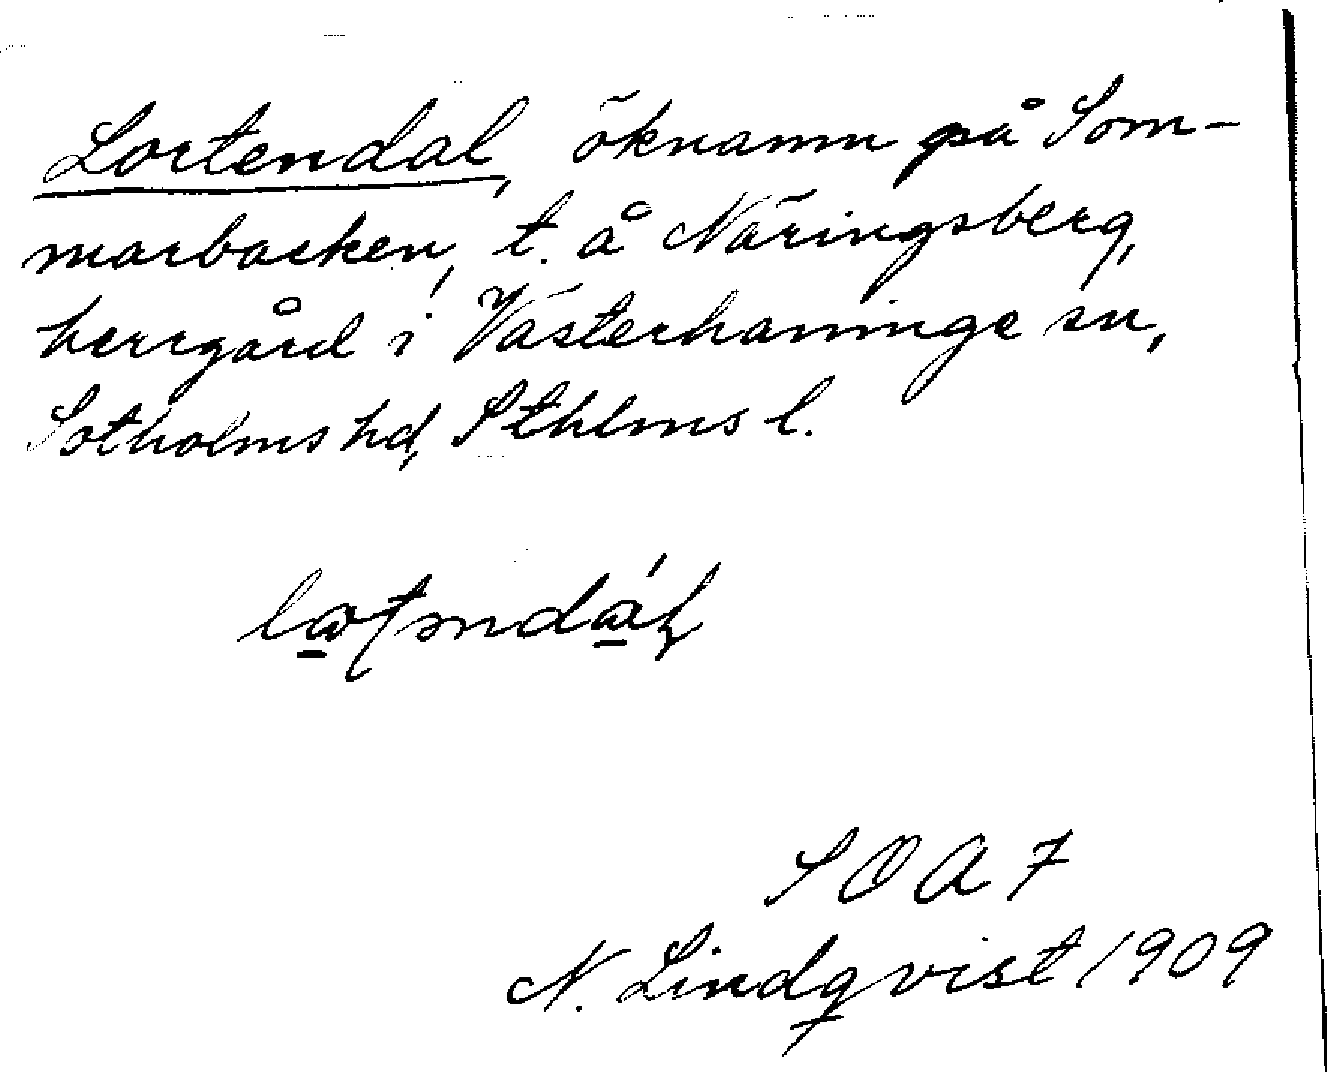 Lortendal, öknamn på Som-
marbacken, t. å Näringsberg,
herrgård i Västerhaninge sn,
Sotholms hd, Sthlms l.
SOA 7
N. Lindqvist 1909